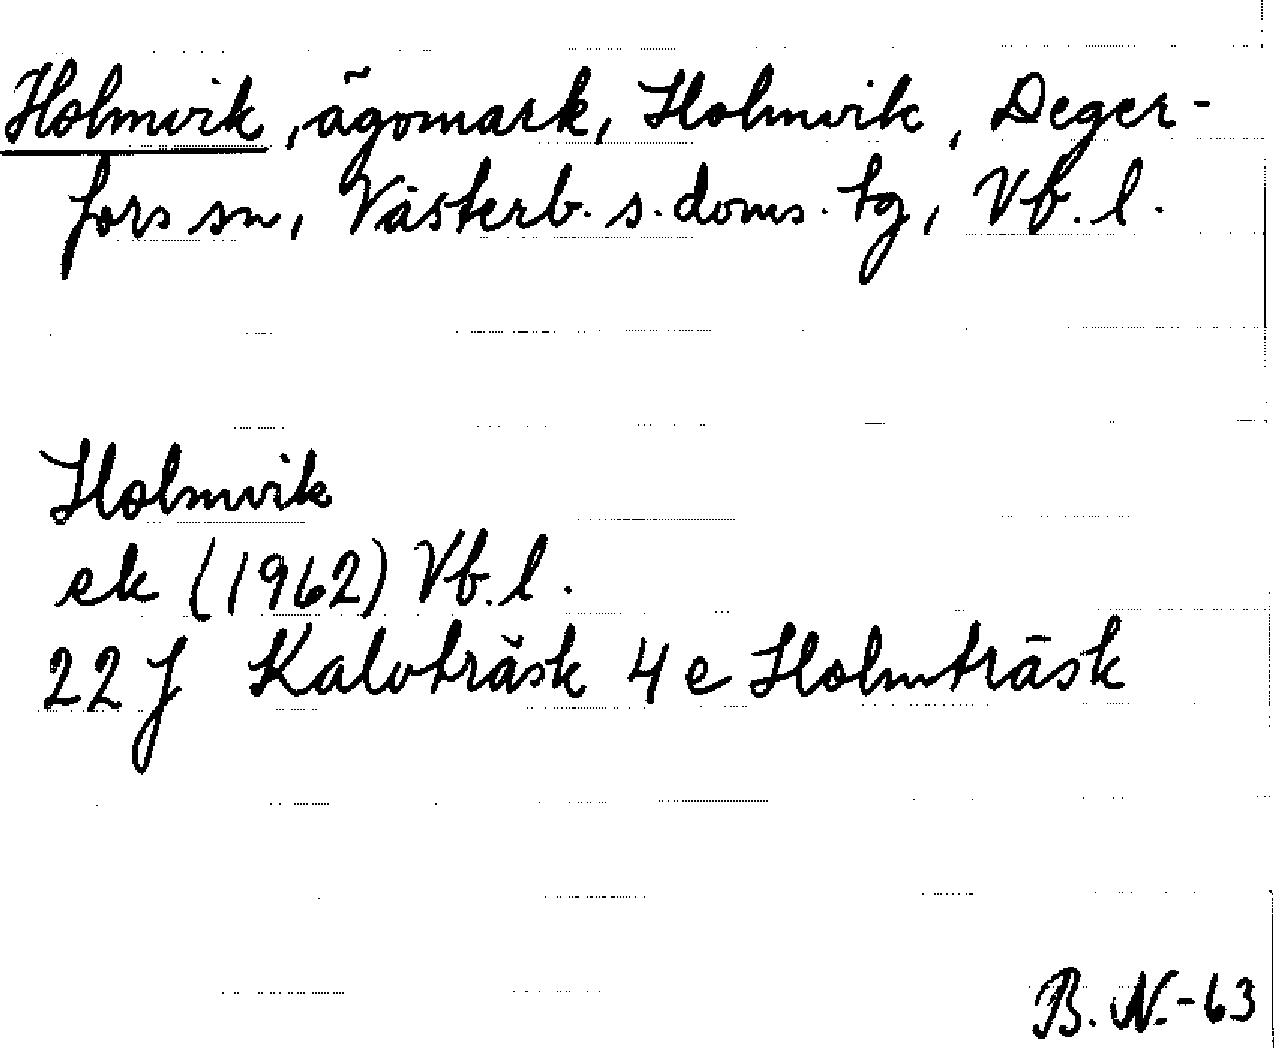 Holmvik, ägomark, Holmvik, Deger-
fors sn, Västerb. s. doms. tg, Vb. l.
Holmvik
ek (1962) Vb. l.
22 J Kalvträsk 4 e Holmträsk
B. N.-63